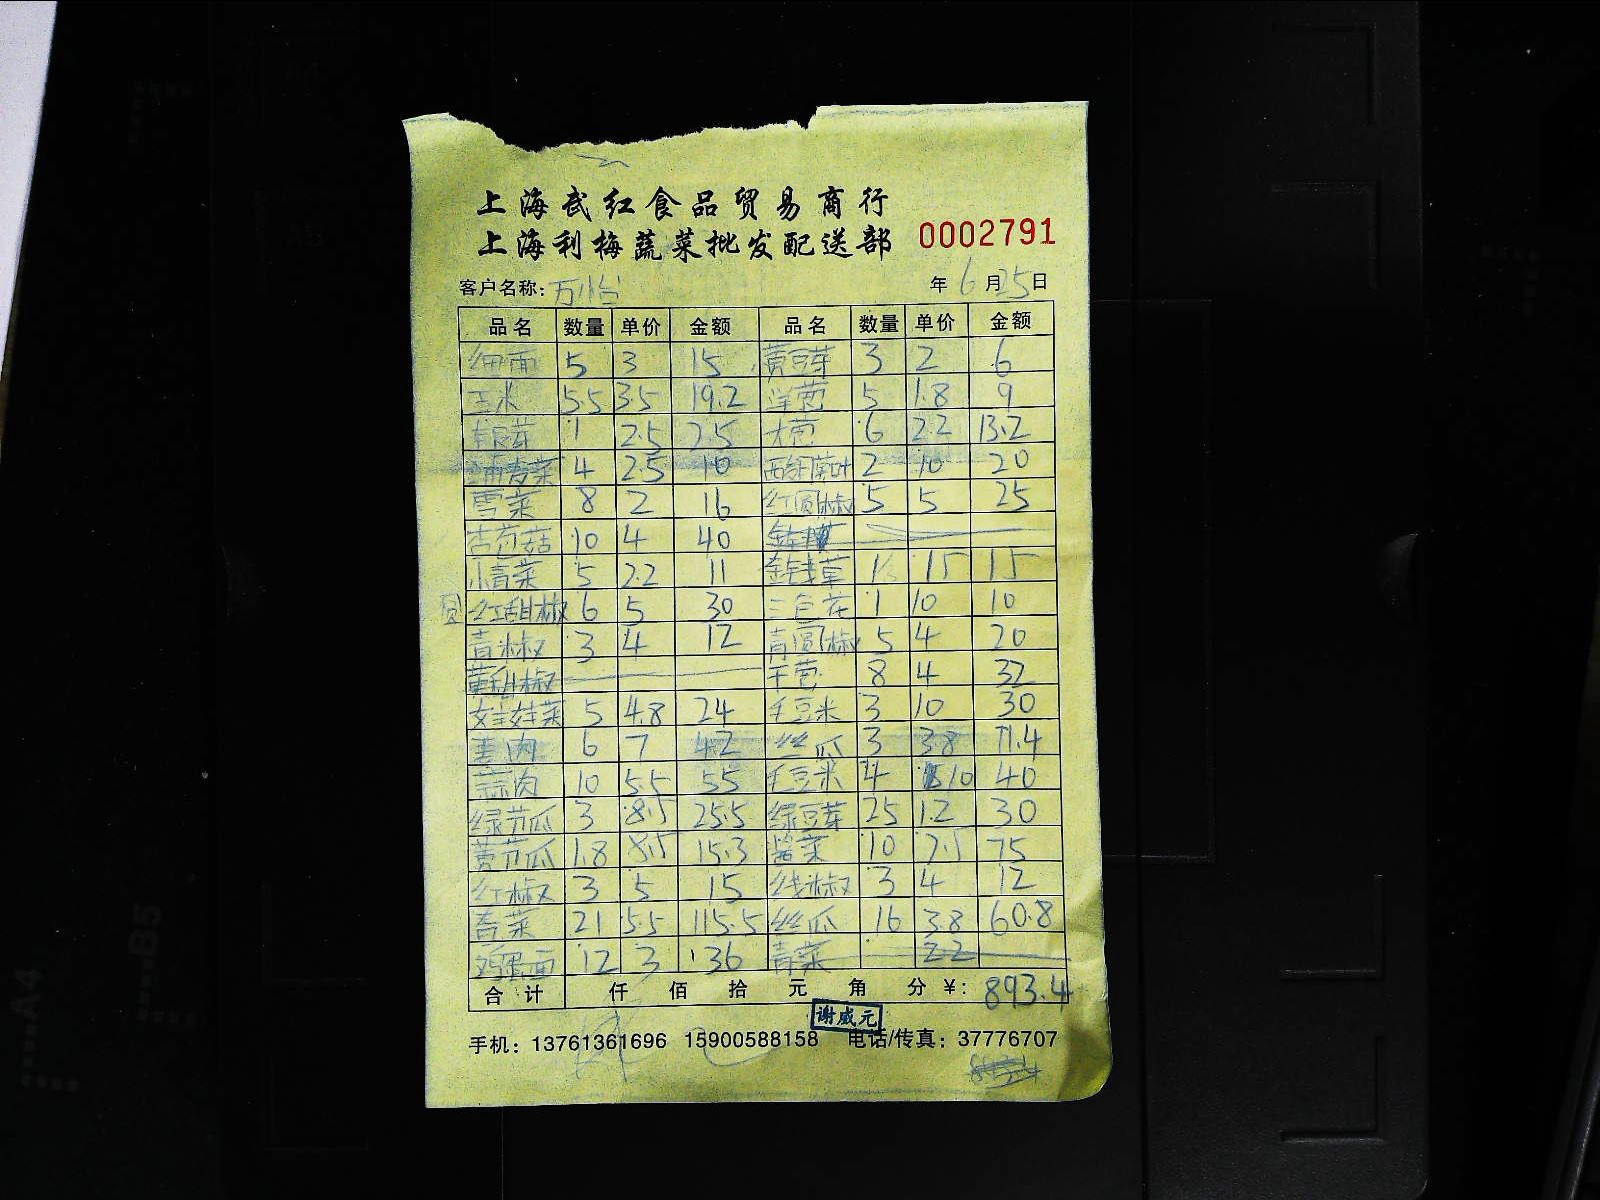 上海武红食品贸易商行
上海利梅蔬菜批发配送部 0002791
客户名称:万怡 年6月25日
品名 数量 单价 金额 品名 数量 单价 金额
细面 5 3 15 黄豆芽 3 2 6
玉米 5.5 3.5 19.2 洋葱 5 1.8 9
银芽 1 2.5 2.5 大葱 6 2.2 13.2
油麦菜 4 2.5 10 西柠菜叶 2 10 20
雪菜 8 2 16 红圆椒 5 5 25
杏苞菇 10 4 40
小青菜 5 2.2 11 金钱草 15 15
红甜椒 6 5 30 三色花 1 10 10
青椒 3 4 12 青圆椒 5 4 20
黄甜椒 干葱 8 4 32
娃娃菜 5 4.8 24 毛豆米 3 10 30
姜肉 6 7 42 丝瓜 3 3.8 11.4
蒜肉 10 5.5 55 毛豆米 4 10 40
绿节瓜 3 8.5 25.5 绿豆芽 25 1.2 30
黄节瓜 1.8 8.5 15.3 酱菜 10 7.5 75
红椒 3 5 15 线椒 3 4 12
奇菜 21 5.5 115.5 丝瓜 16 3.8 60.8
鸡蛋面 12 3 36 青菜 2.2
合计 仟 佰 拾 元 角 分 ¥: 893.4
谢威元
手机: 13761361696 15900588158 电话/传真: 37776707